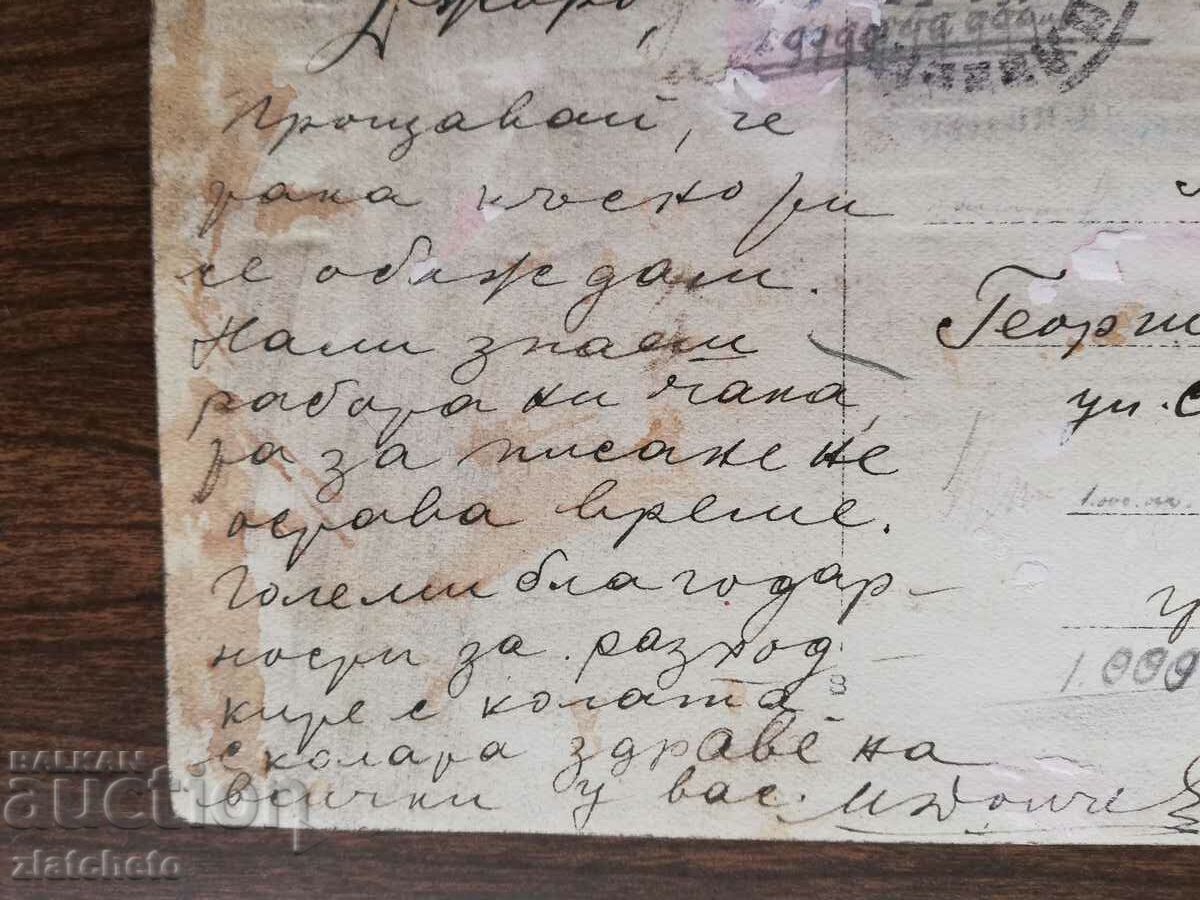 Прощавай, че
така късно ти
се обаждам.
Нали знаеш
работа ни чака,
та за писане не
остава време.
Големи благодар-
ности за разход
ките с колата
с колата здраве на
всички у вас.
Георги
ул. С
1.000
8
BALKAN
auction
zlatcheto